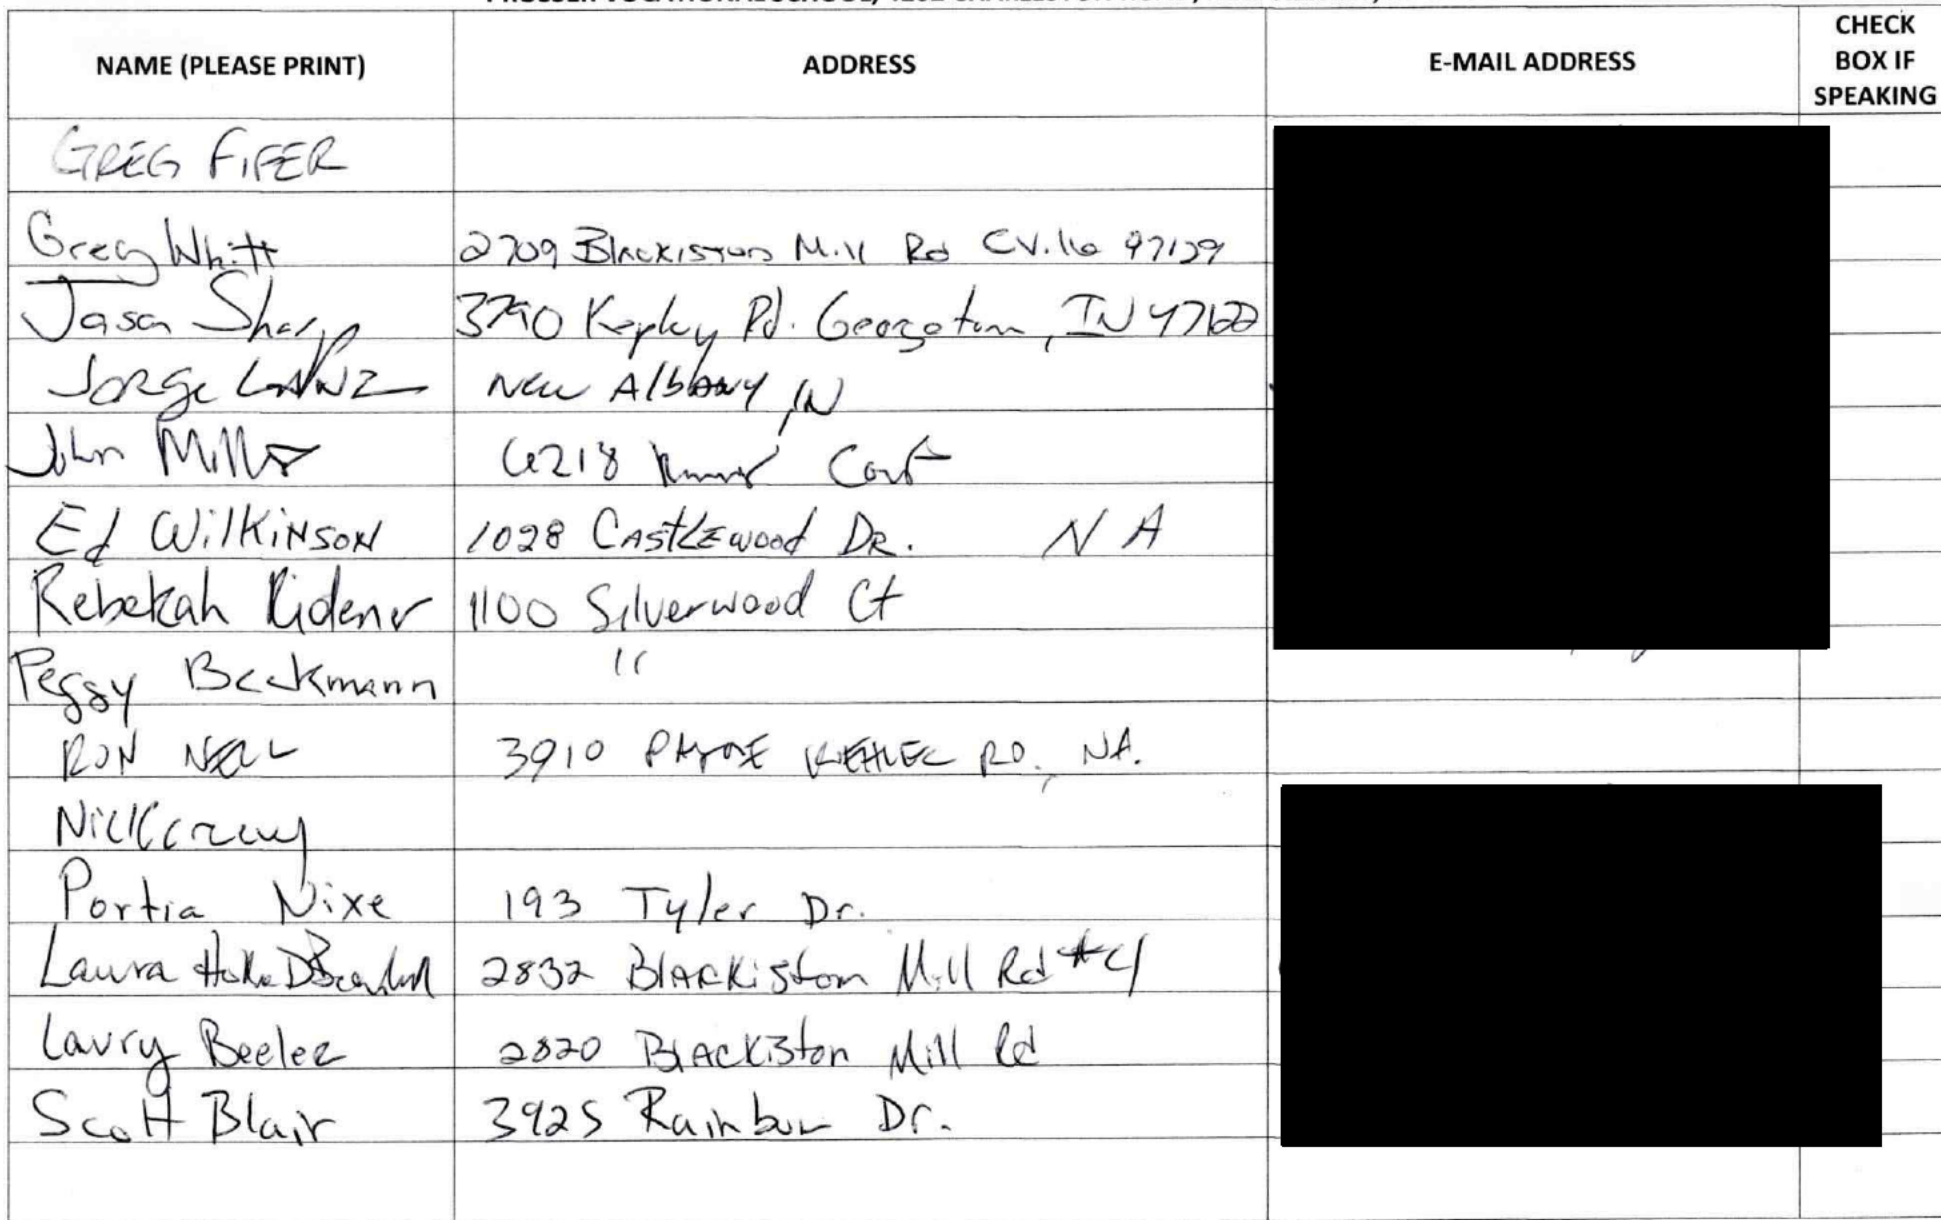 NAME (PLEASE PRINT) ADDRESS E-MAIL ADDRESS CHECK BOX IF SPEAKING
GREG FIFER
Greg Whitt 2709 Blackiston Mill Rd
Jason Sharp 3790 Kepley Rd. Georgetown, IN
JORGE LANZ New Albany, IN
John Miller 6218
Ed WilKiNSON 1028 CAStLEwood DR. N A
Rebekah Ridener 1100 Silverwood Ct
Peggy Beckmann "
RON NEAL 3910 PAYNE KOEHLER RD., NA.
Portia Nixe 193 Tyler Dr.
Laura 2832 BlAcKiston Mill Rd #
Beeler 2820 BlAcKiston Mill Rd
Scott Blair 3925 Rainbow Dr.